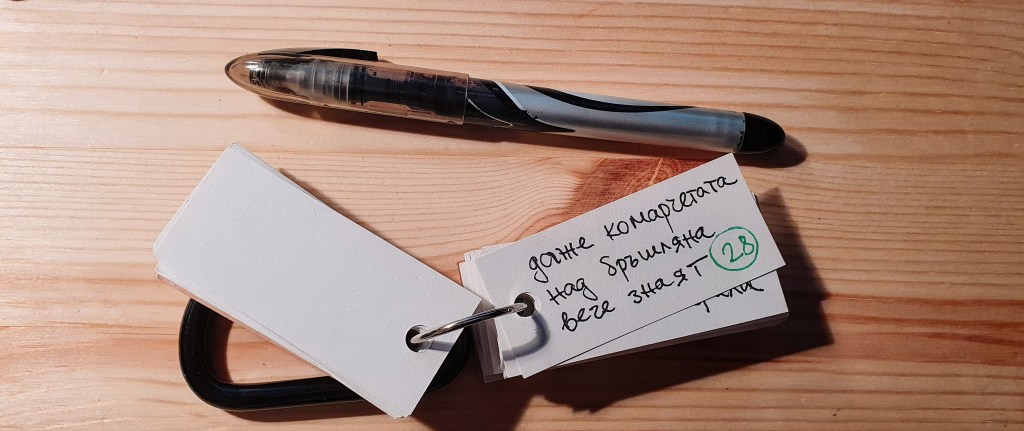 даже комарчетата
над бръшляна
вече знаят 28